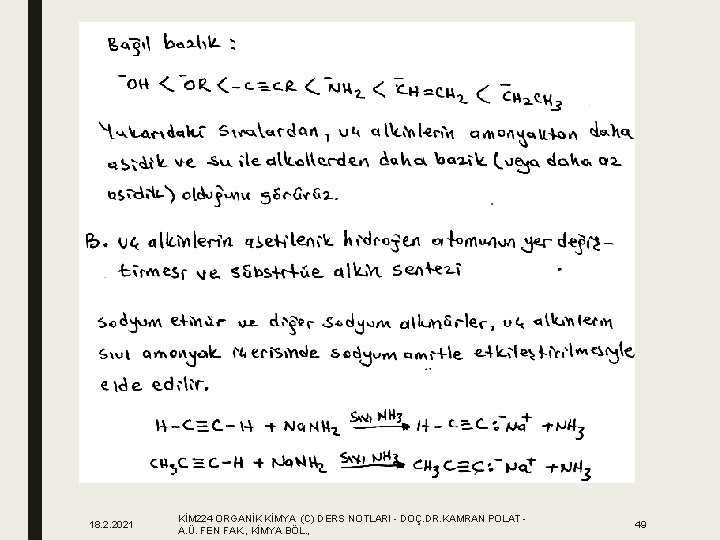 Bağıl bazlık :
⁻OH < ⁻OR < ⁻C≡CR < ⁻NH₂ < ⁻CH=CH₂ < ⁻CH₂CH₃
Yukarıdaki sıralardan, uç alkinlerin amonyaktan daha
asidik ve su ile alkollerden daha bazik (veya daha az
asidik) olduğunu görürüz.
B. Uç alkinlerin asetilenik hidrojen atomunun yer değiş-
tirmesi ve sübstitüe alkin sentezi
Sodyum etinür ve diğer sodyum alkinürler, uç alkinlerin
sıvı amonyak içerisinde sodyum amitle etkileştirilmesiyle
elde edilir.
H-C≡C-H + NaNH₂ —Sıvı NH₃→ H-C≡C:⁻Na⁺ + NH₃
CH₃C≡C-H + NaNH₂ —Sıvı NH₃→ CH₃C≡C:⁻Na⁺ + NH₃
18.2.2021
KİM224 ORGANİK KİMYA (C) DERS NOTLARI - DOÇ.DR.KAMRAN POLAT -
A.Ü. FEN FAK., KİMYA BÖL.,
49